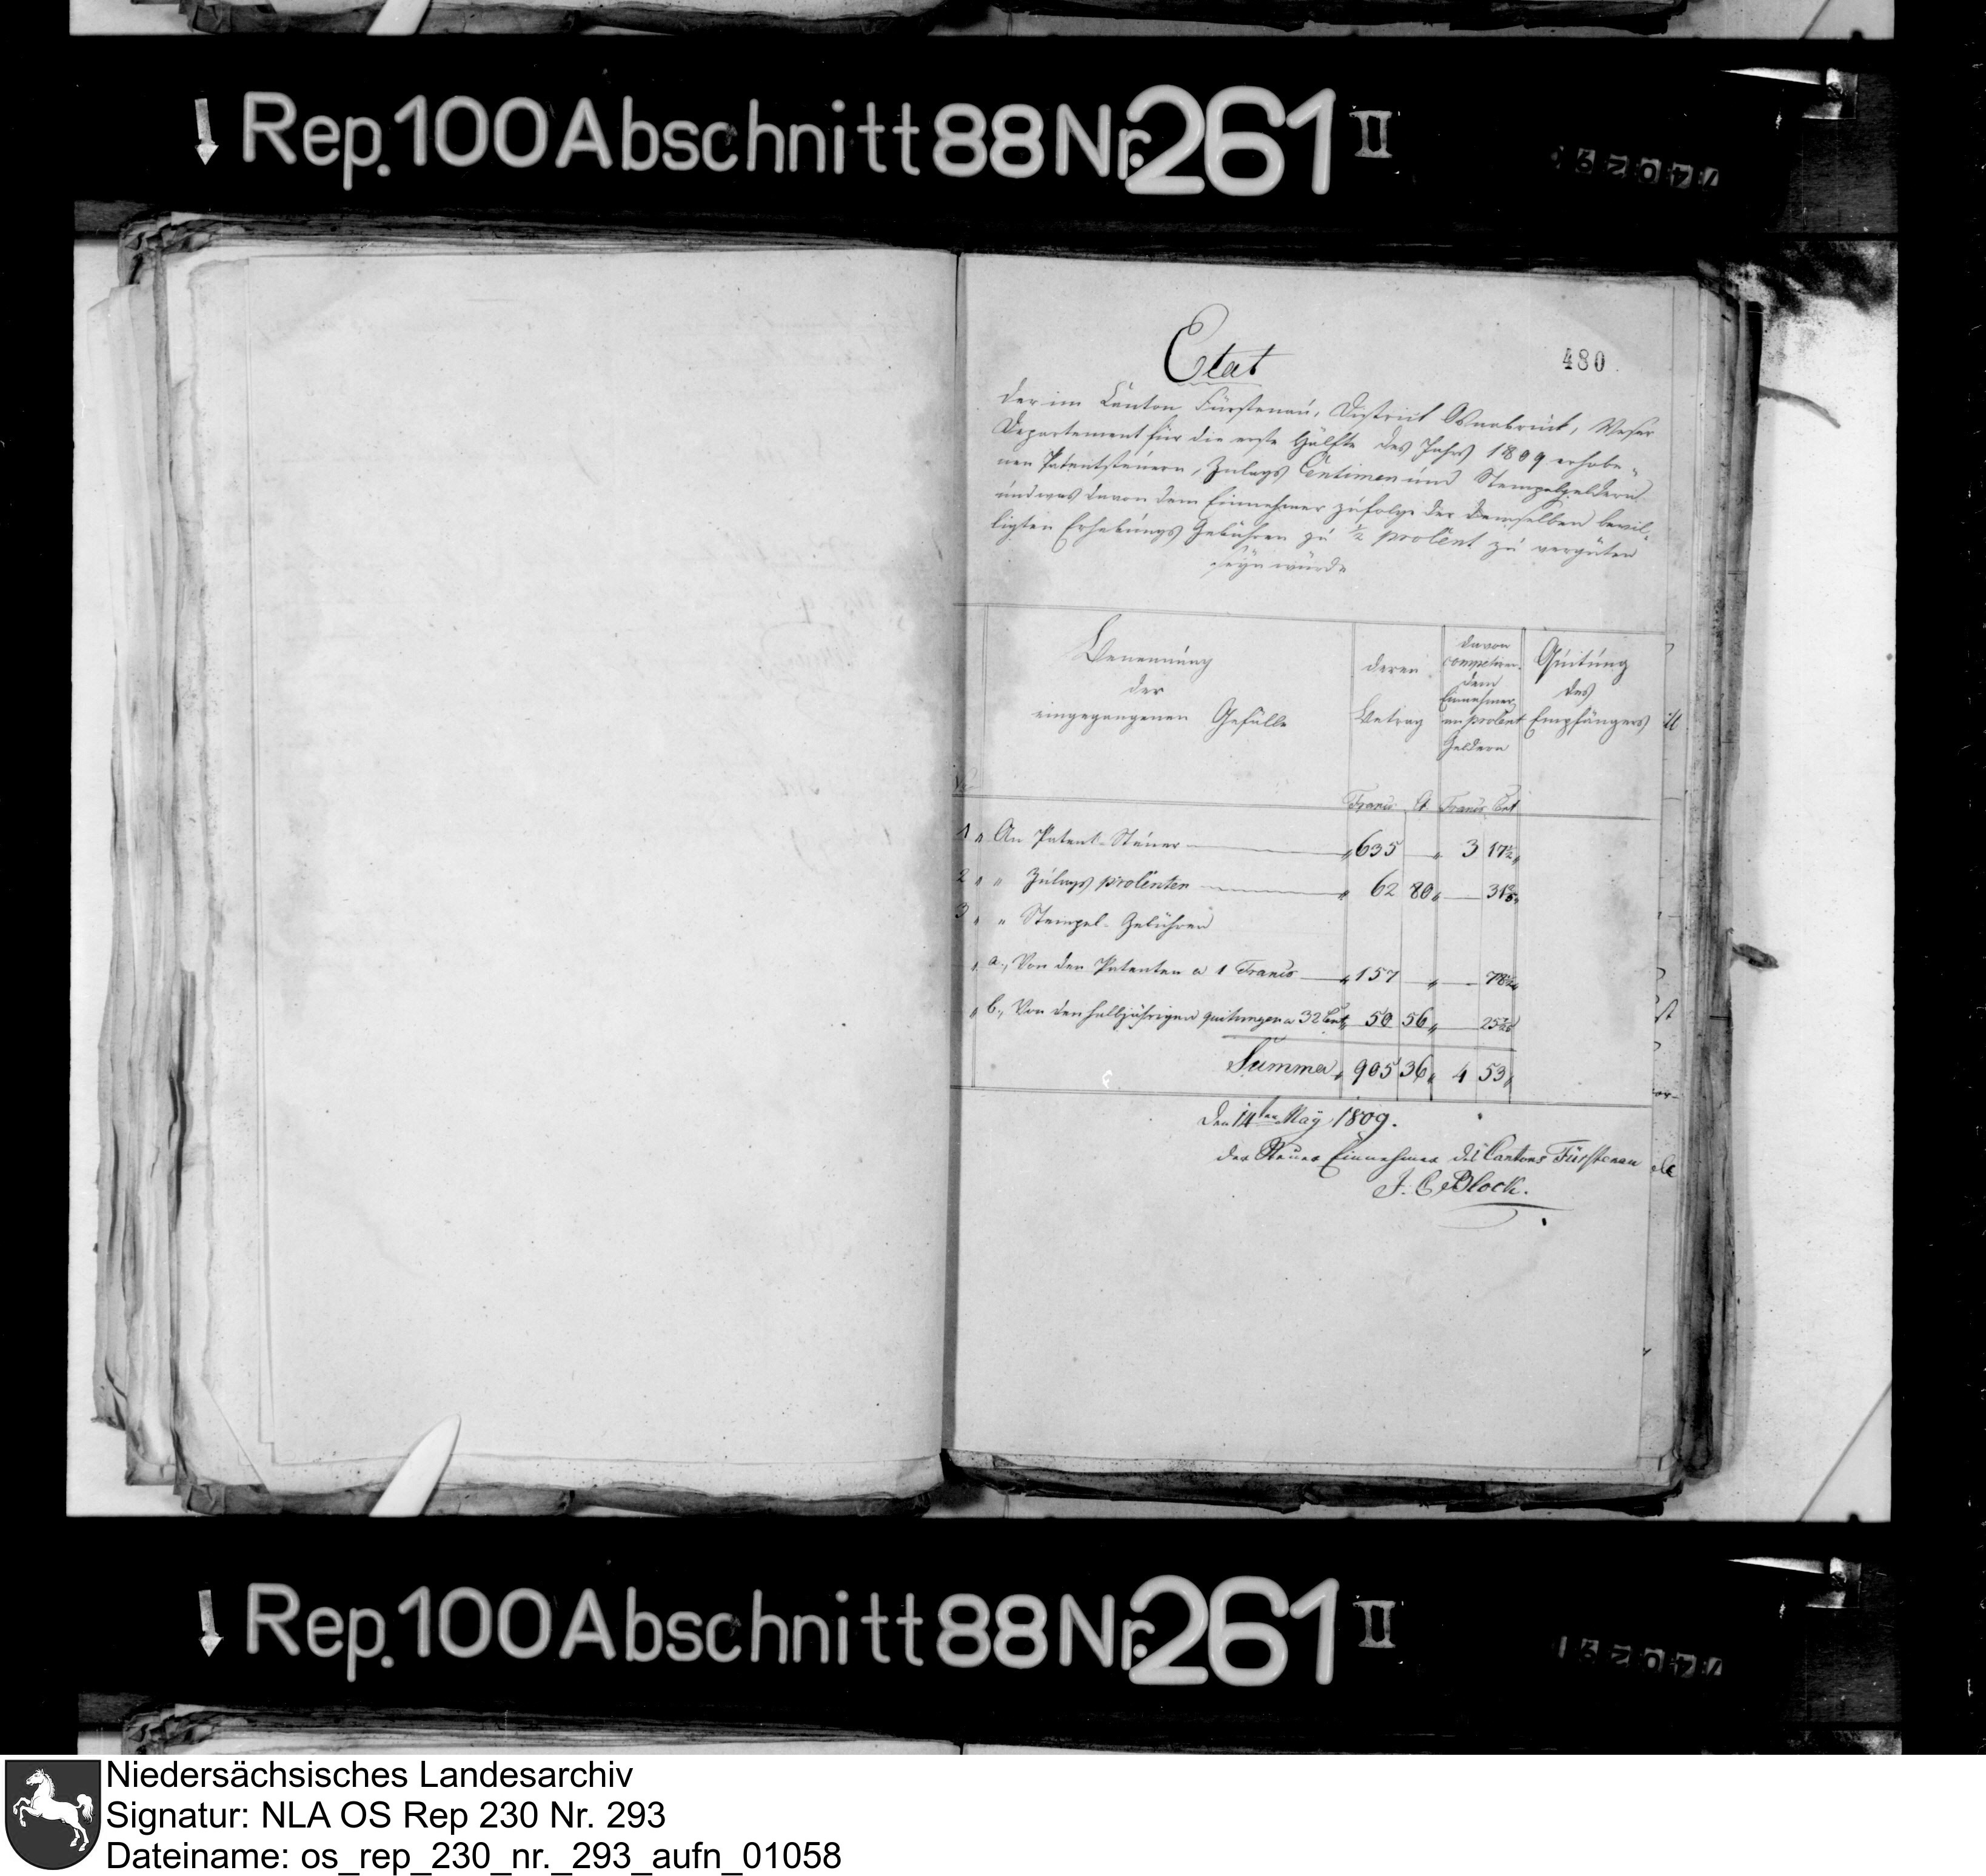 Rep. 100 Abschnitt 88 Nr. 261 II
Etat
480
der im Canton Fürstenau, District Osnabrück, Weser
Departement für die erste Hälfte des Jahrs 1809 erhobe-
nen Patentsteuern, Zulags Centimen und Stempelgeldern
und was davon dem Einnehmer zufolge der demselben bewil-
ligten Erhebungs Gebühren zu 1/2 proCent zu vergüten
seyn würde
Benennung der eingegangenen Gefälle
deren Betrag
davon competiren dem Einnehmer an proCent Geldern
Quitung des Empfängers
Francs Ct Francs Cent
1 " An Patent-Steuer " 635 " 3 17 1/2 "
2 " " Zulags proCenten " 62 80 " 31 2/5 "
3 " " Stempel-Gebühren
" a., Von den Patenten a 1 Francs " 157 " 78 1/2 "
" b., Von den halbjährigen quitungen a 32 Cent " 50 56 " 25
Summa " 905 36 " 4 53 "
Den 14ten May 1809.
der Steuer Einnehmer des Cantons Fürstenau
J. C. Block.
Rep. 100 Abschnitt 88 Nr. 261 II
Niedersächsisches Landesarchiv
Signatur: NLA OS Rep 230 Nr. 293
Dateiname: os_rep_230_nr._293_aufn_01058